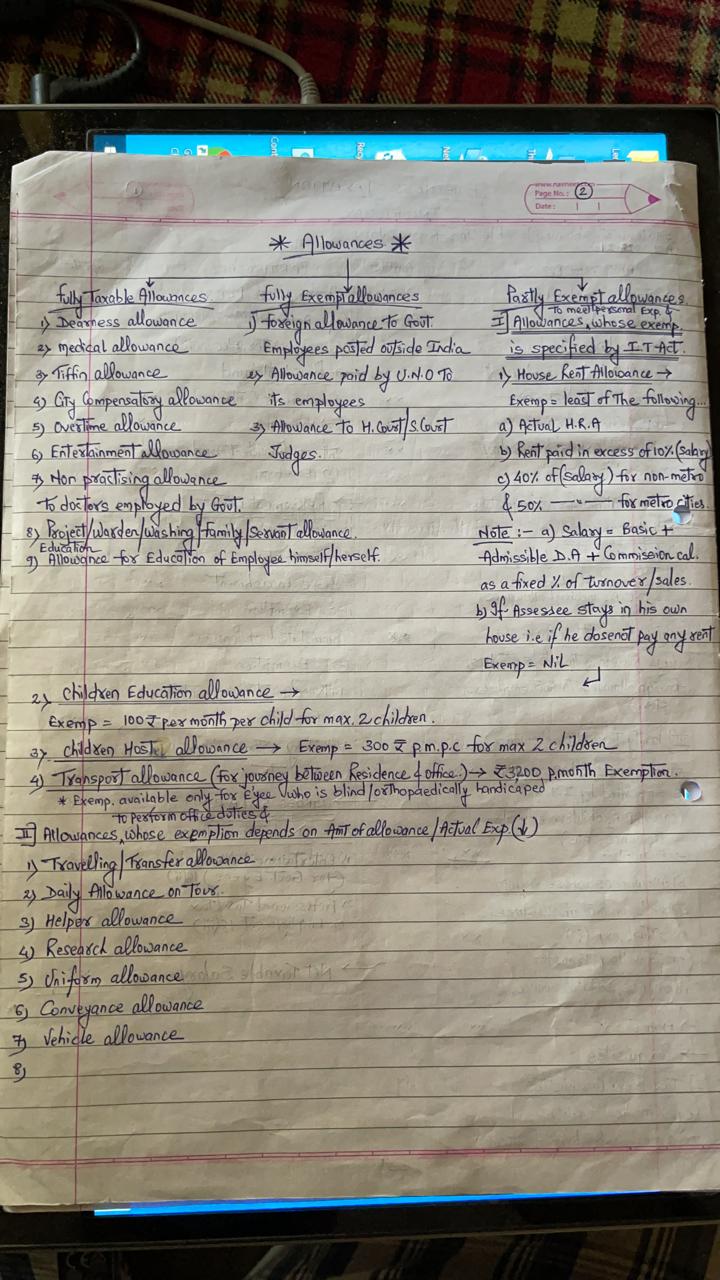 www.navneet.com
Page No.: 2
Date:
* Allowances *
Fully Taxable Allowances
1) Dearness allowance
2) medical allowance
3) Tiffin allowance
4) City Compensatory allowance
5) Overtime allowance
6) Entertainment allowance
7) Non practising allowance
to doctors employed by Govt.
8) Project/Warden/Washing/family/Servant allowance.
9) Education Allowance for Education of Employee himself/herself.
Fully Exempt allowances
1) foreign allowance to Govt.
Employees posted outside India
2) Allowance paid by U.N.O To
its employees
3) Allowance to H.Court/S.Court
Judges.
Partly Exempt allowances.
To meet personal Exp. &
I] Allowances, whose exemp
is specified by I.T. Act.
1) House Rent Allowance →
Exemp = least of The following...
a) Actual H.R.A
b) Rent paid in excess of 10% (Salary
c) 40% of (salary) for non-metro
& 50% —〃— for metro cities.
Note :- a) Salary = Basic +
Admissible D.A + Commission cal.
as a fixed % of turnover/sales.
b) If Assessee stays in his own
house i.e if he dosenot pay any rent
Exemp = NiL
2) Children Education allowance →
Exemp = 100₹ per month per child for max. 2 children.
3) Children Hostel allowance → Exemp = 300 ₹ p.m.p.c for max 2 children
4) Transport allowance (for journey between Residence & office.) → ₹3200 p.month Exemption.
* Exemp. available only for E'yee who is blind/orthopaedically handicaped
to perform office duties &
II] Allowances, whose exemption depends on Amt of allowance/Actual Exp.(↓)
1) Travelling/Transfer allowance
2) Daily Allowance on Tour.
3) Helper allowance
4) Research allowance
5) Uniform allowance
6) Conveyance allowance
7) Vehicle allowance
8)